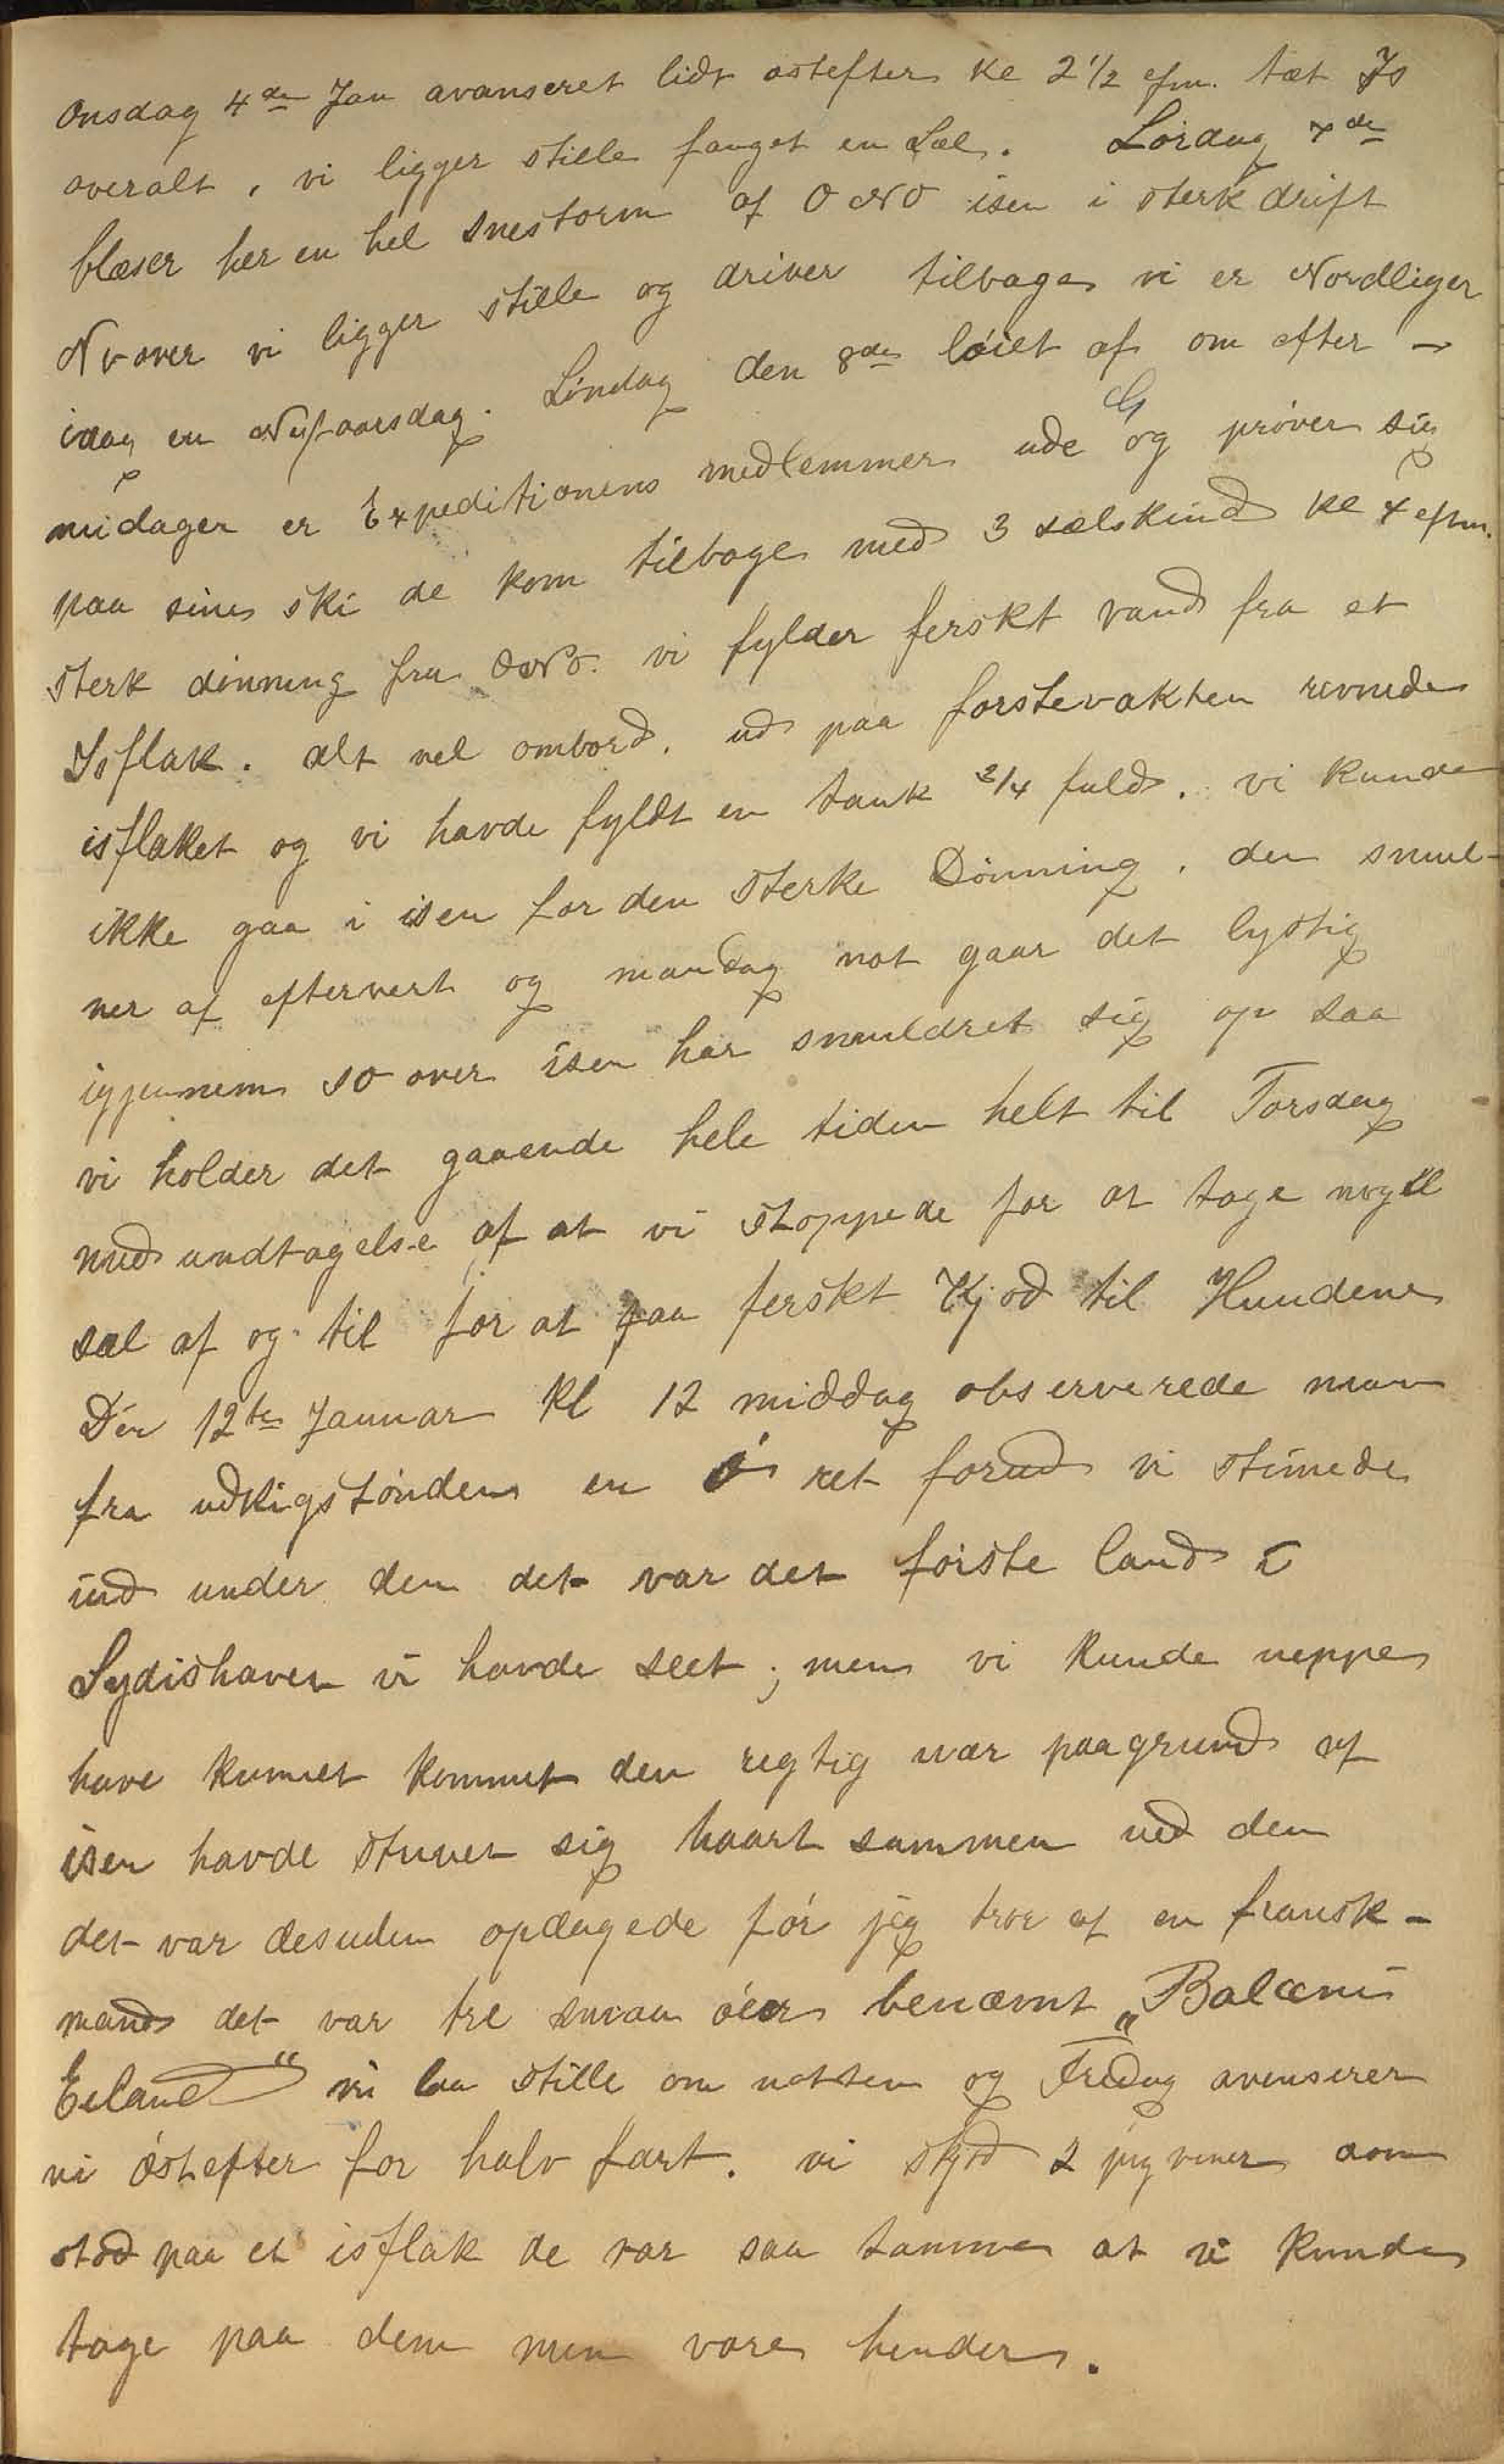 Onsdag 4de Jan avanseret lidt ostefter kl 2 1/2 efm. tæt Is
overalt, vi ligger stille fanget en Sæl. Lørdag 7de
blæser her en hel snestorm af ONO isen i sterk drift
Nv over vi ligger stille og driver tilbage vi er Nordliger
idag en Nytaarsdag. Søndag den 8de løiet af om efter -
midagen er Expeditionens medlemmer ude og prøver sig
paa sine ski de kom tilbage med 3 sælskind kl 7 efm.
sterk dønning fra ONO. vi fylder ferskt vand fra et
Isflak. Alt vel ombord. ud paa førstevakten revnede
isflaket og vi havde fyldt en tank 3/4 fuld. vi kunde
ikke gaa i isen for den sterke Dønning. den smul-
ner af eftervert og mandag nat gaar det lystig
igjennem SO over isen har smuldret sig op saa
vi holder det gaaende hele tiden helt til Torsdag
med undtagelse af at vi stoppede for at tage nogel
sæl af og til for at faa ferskt Kjød til Hundene
Den 12te Januar Kl 12 middag observerede man
fra udkigstønden en Ø ret forud vi stimede
ind under den det var det første land i
Sydishaven vi havde seet; men vi kunde neppe
have kunnet kommet den regtig nær paa grund af
isen havde stuvet sig haart sammen ved den
det var desuden opdagede før jeg tror af en fransk-
mand det var tre smaa øer benævnt „Balæni
Eeland“ vi laa stille om natten og Fredag avenserer
vi østefter for halv fart. vi skjød 2 pigviner som
stod paa et isflak de var saa tamme at vi kunde
tage paa dem men vore hender.